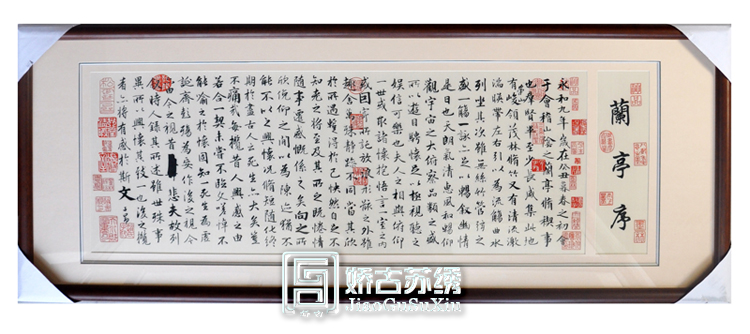 蘭亭序
永和九年歲在癸丑暮春之初會
于會稽山陰之蘭亭脩稧事
也羣賢畢至少長咸集此地
有峻領茂林脩竹又有清流激
湍暎帶左右引以為流觴曲水
列坐其次雖無絲竹管弦之
盛一觴一詠亦足以暢叙幽情
是日也天朗氣清惠風和暢仰
觀宇宙之大俯察品類之盛
所以遊目騁懷足以極視聽之
娛信可樂也夫人之相與俯仰
一世或取諸懷抱悟言一室之內
或因寄所託放浪形骸之外雖
趣舍萬殊靜躁不同當其欣
於所遇蹔得於己怏然自足不
知老之將至及其所之既惓情
隨事遷感慨係之矣向之所
欣俛仰之閒以為陳迹猶不
能不以之興懷況脩短隨化終
期於盡古人云死生亦大矣豈
不痛哉每攬昔人興感之由
若合一契未嘗不臨文嗟悼不
能喻之於懷固知一死生為虛
誕齊彭殤為妄作後之視今
由今之視昔 悲夫故列
叙時人錄其所述雖世殊事
異所以興懷其致一也後之攬
者亦將有感於斯文
娇古苏绣
JiaoGuSuXiu